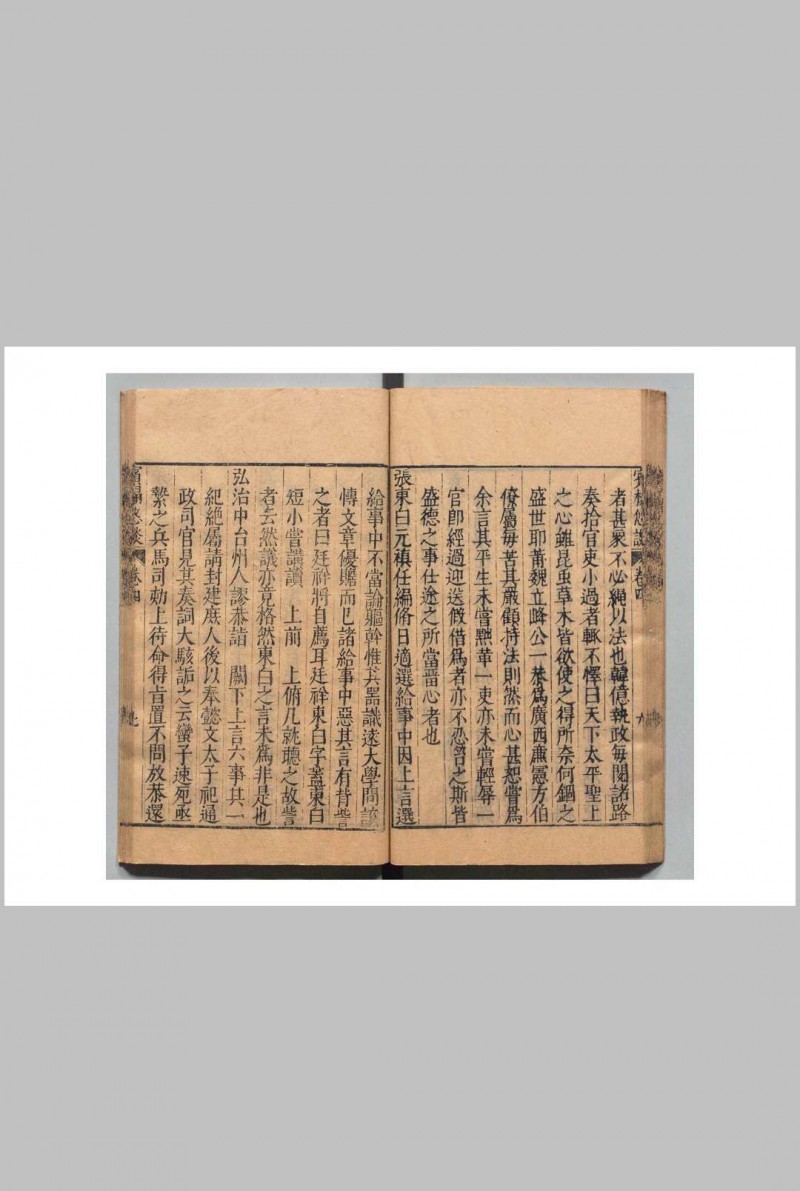 者甚衆不必繩以法也韓億執政毎閱諸路
奏拾官吏小過者輒不懌曰天下太平聖上
之心雖昆虫草木皆欲使之得所奈何錮之
盛世耶莆魏立峰公一恭爲廣西㢘憲方伯
僚屬毎苦其嚴顧持法則然而心甚恕嘗爲
余言其平生未嘗黜革一吏亦未嘗輕辱一
官卽經過迎送假借爲者亦不忍咎之斯皆
盛德之事仕途之所當畱心者也
張東白元禎任編脩日適選給事中因上言選
給事中不當論軀幹惟其器識遠大學問該
博文章優贍而已諸給事中惡其言有背訾
之者曰廷祥將自薦耳廷祥東白字蓋東白
短小嘗講讀 上前 上俯几就聽之故訾
者云然議亦竟格然東白之言未爲非是也
弘治中台州人謬恭詣 闕下上言六事其一
紀絶屬請封建庶人後以奉懿文太子祀通
政司官見其奏詞大駭詬之云蠻子速死亟
繫之兵馬司劾上待命得旨置不問放恭還
卷四